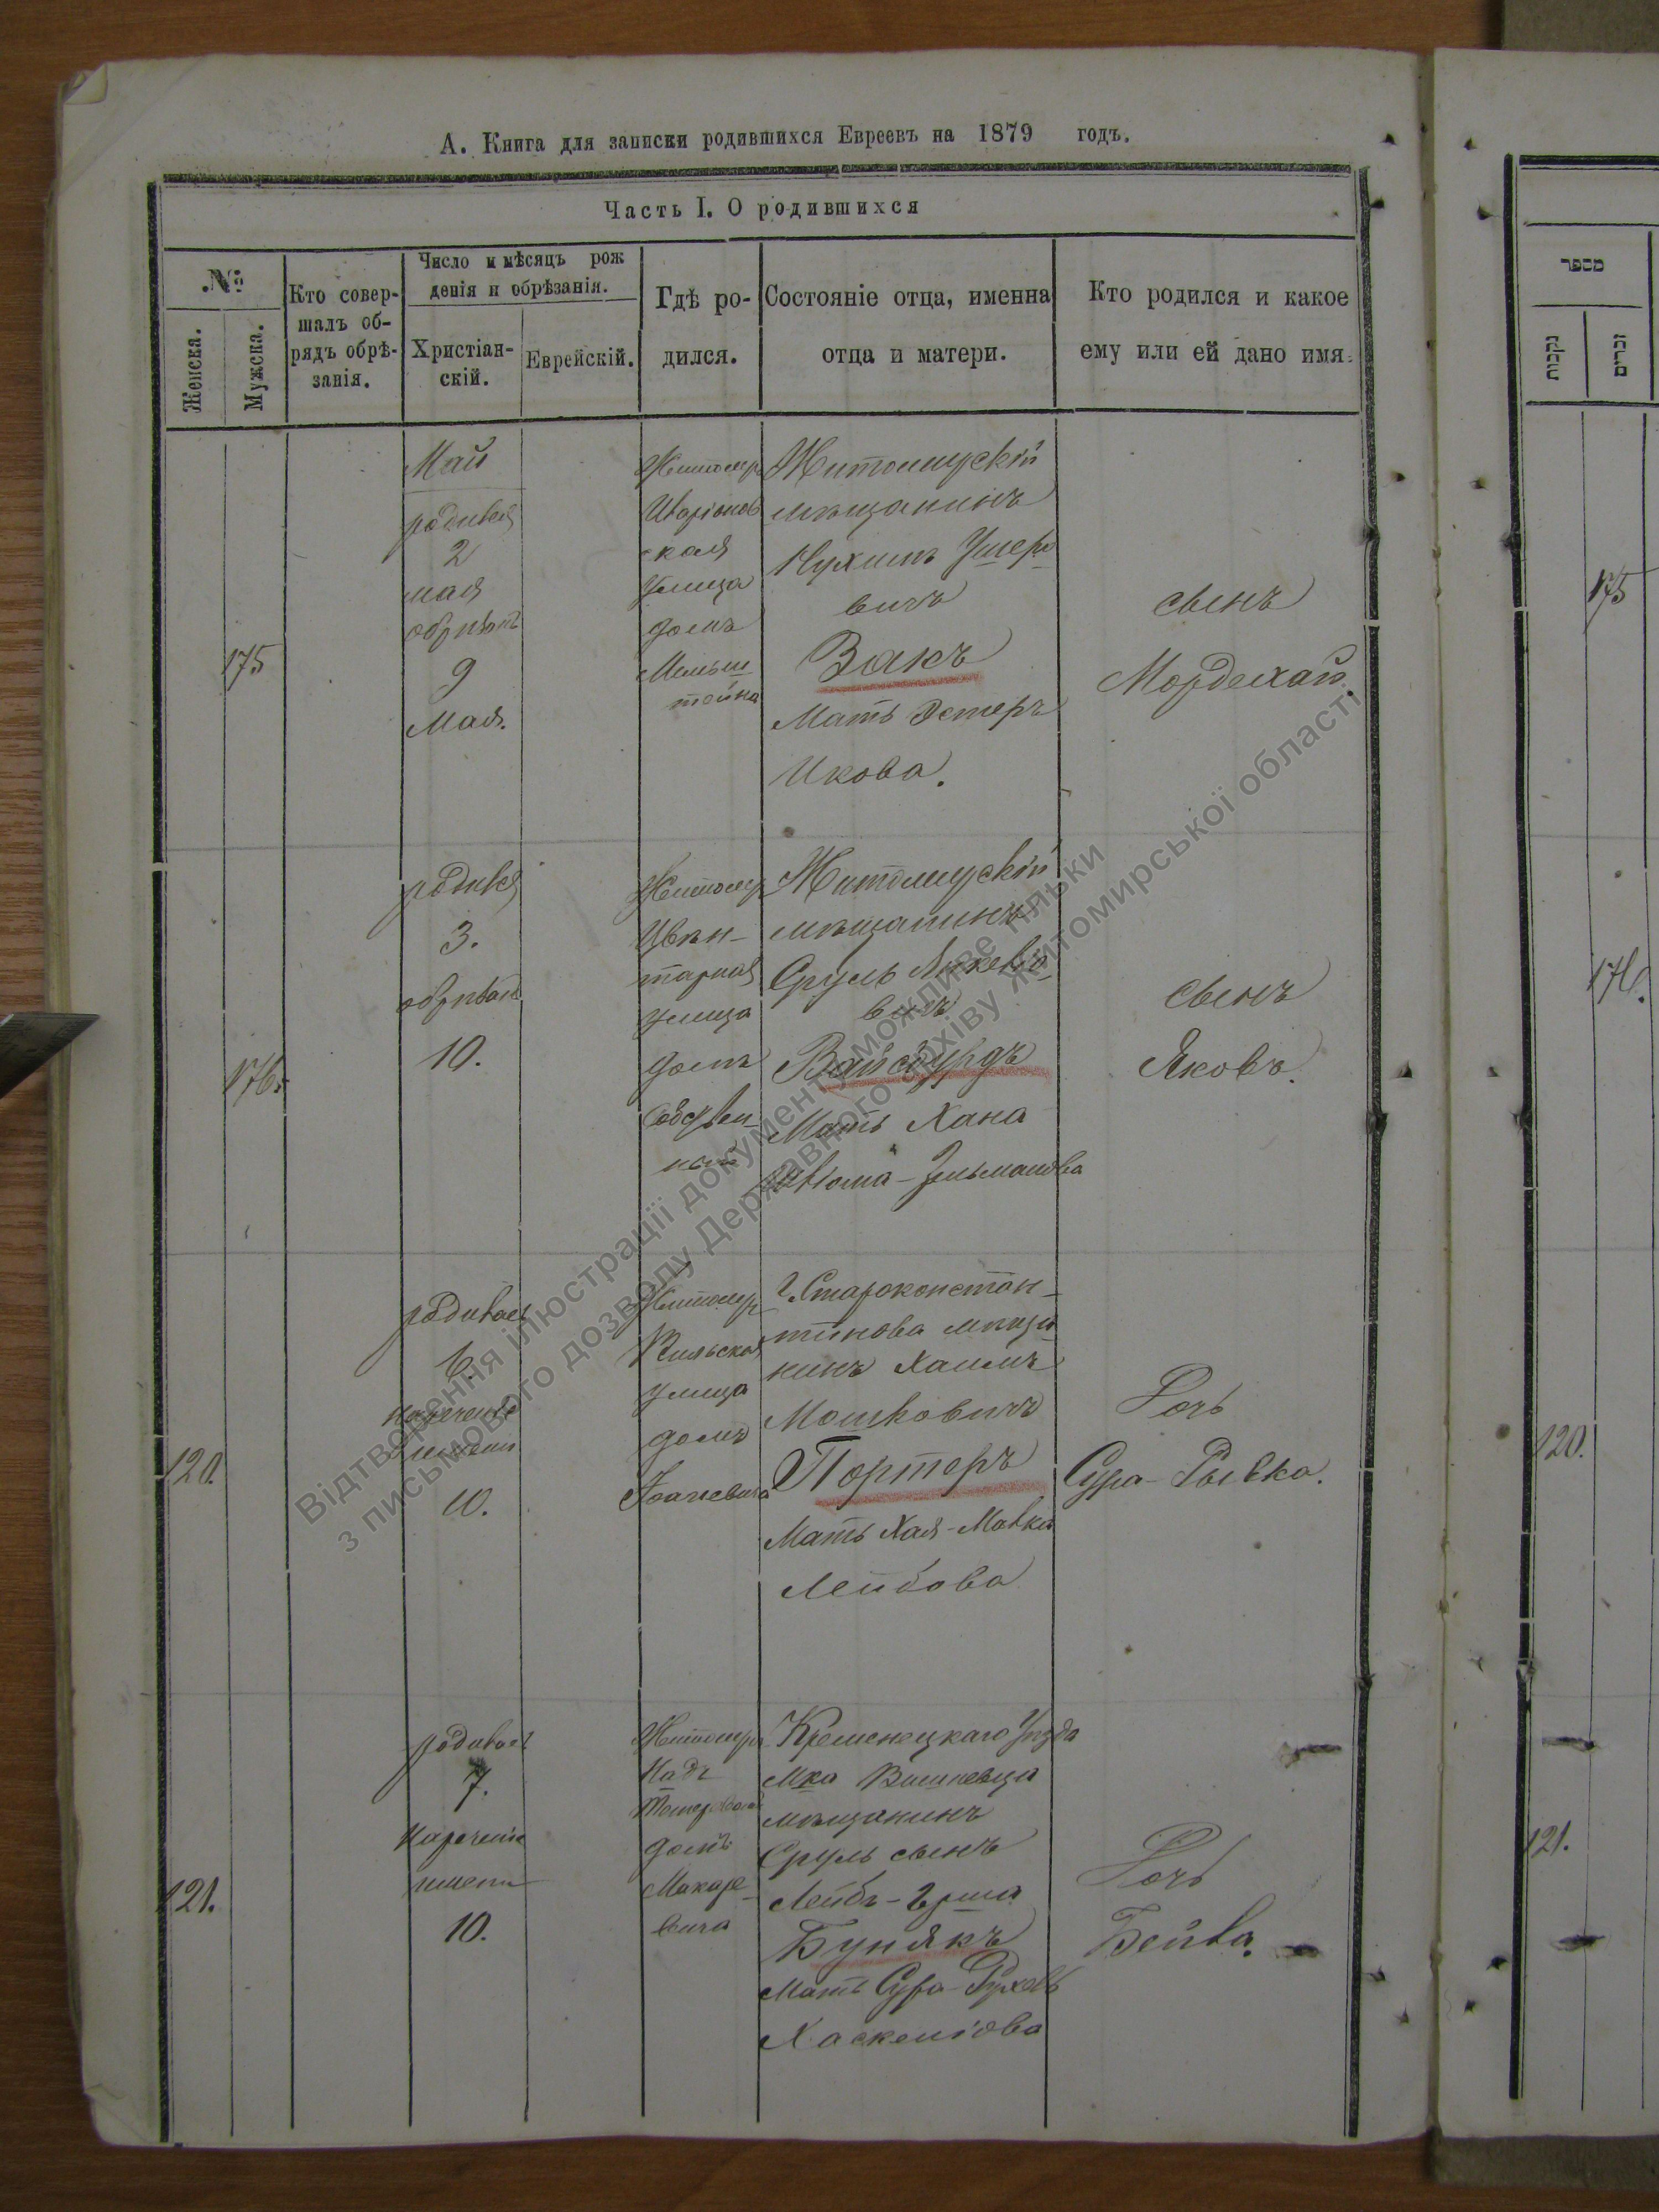 А. Книга для записки родившихся Евреевъ на 1879 годъ.
Часть I. О родившихся
№
Женска.
Мужска.
Кто совер-
шалъ об-
рядъ обрѣ-
занія.
Число и мѣсяцъ рож
денія и обрѣзанія.
Христіан-
скій.
Еврейскій.
Гдѣ ро-
дился.
Состояніе отца, именна
отца и матери.
Кто родился и какое
ему или ей дано имя.
175
Май
родився
2
мая
обрѣзанъ
9
Мая.
Житомир
ская
улица
домъ
Житомирскій
мѣщанинъ
Нухимъ Ушеро
вичъ
Закъ
Мать Эстеръ
Ицкова.
сынъ
Мордехай.
176.
родився
3.
обрѣзанъ
10.
Житомир
Цвин-
тарная
улица
домъ
Собствен-
ной
Житомирскій
мѣщанинъ
Сруль
вичъ
Вайсбурдъ
Мать Хана
сынъ
Яковъ.
120.
родилась
6.
наречение
имени
10.
Житомир
улица
домъ
Г. Староконстан-
тинова мѣща
нинъ Хаимъ
Мошковичъ
Портеръ
Мать Хая-
Лейбова
Дочь
Сура-Рывка.
121.
родилась
7.
наречение
имени
10.
Житомир
Надъ
домъ
Макаре-
вича
Кременецкаго Уѣзда
Мка Вишневца
мѣщанинъ
Сруль сынъ
Лейбъ-Герша
Бунякъ
Мать Сура-Рухель
Хаскелiова
Дочь
Бейла.
מספר
נקבות
זכרים
175
176.
120.
121.
Відтворення ілюстрації документу можливе тільки
з письмового дозволу Державного архіву Житомирської області